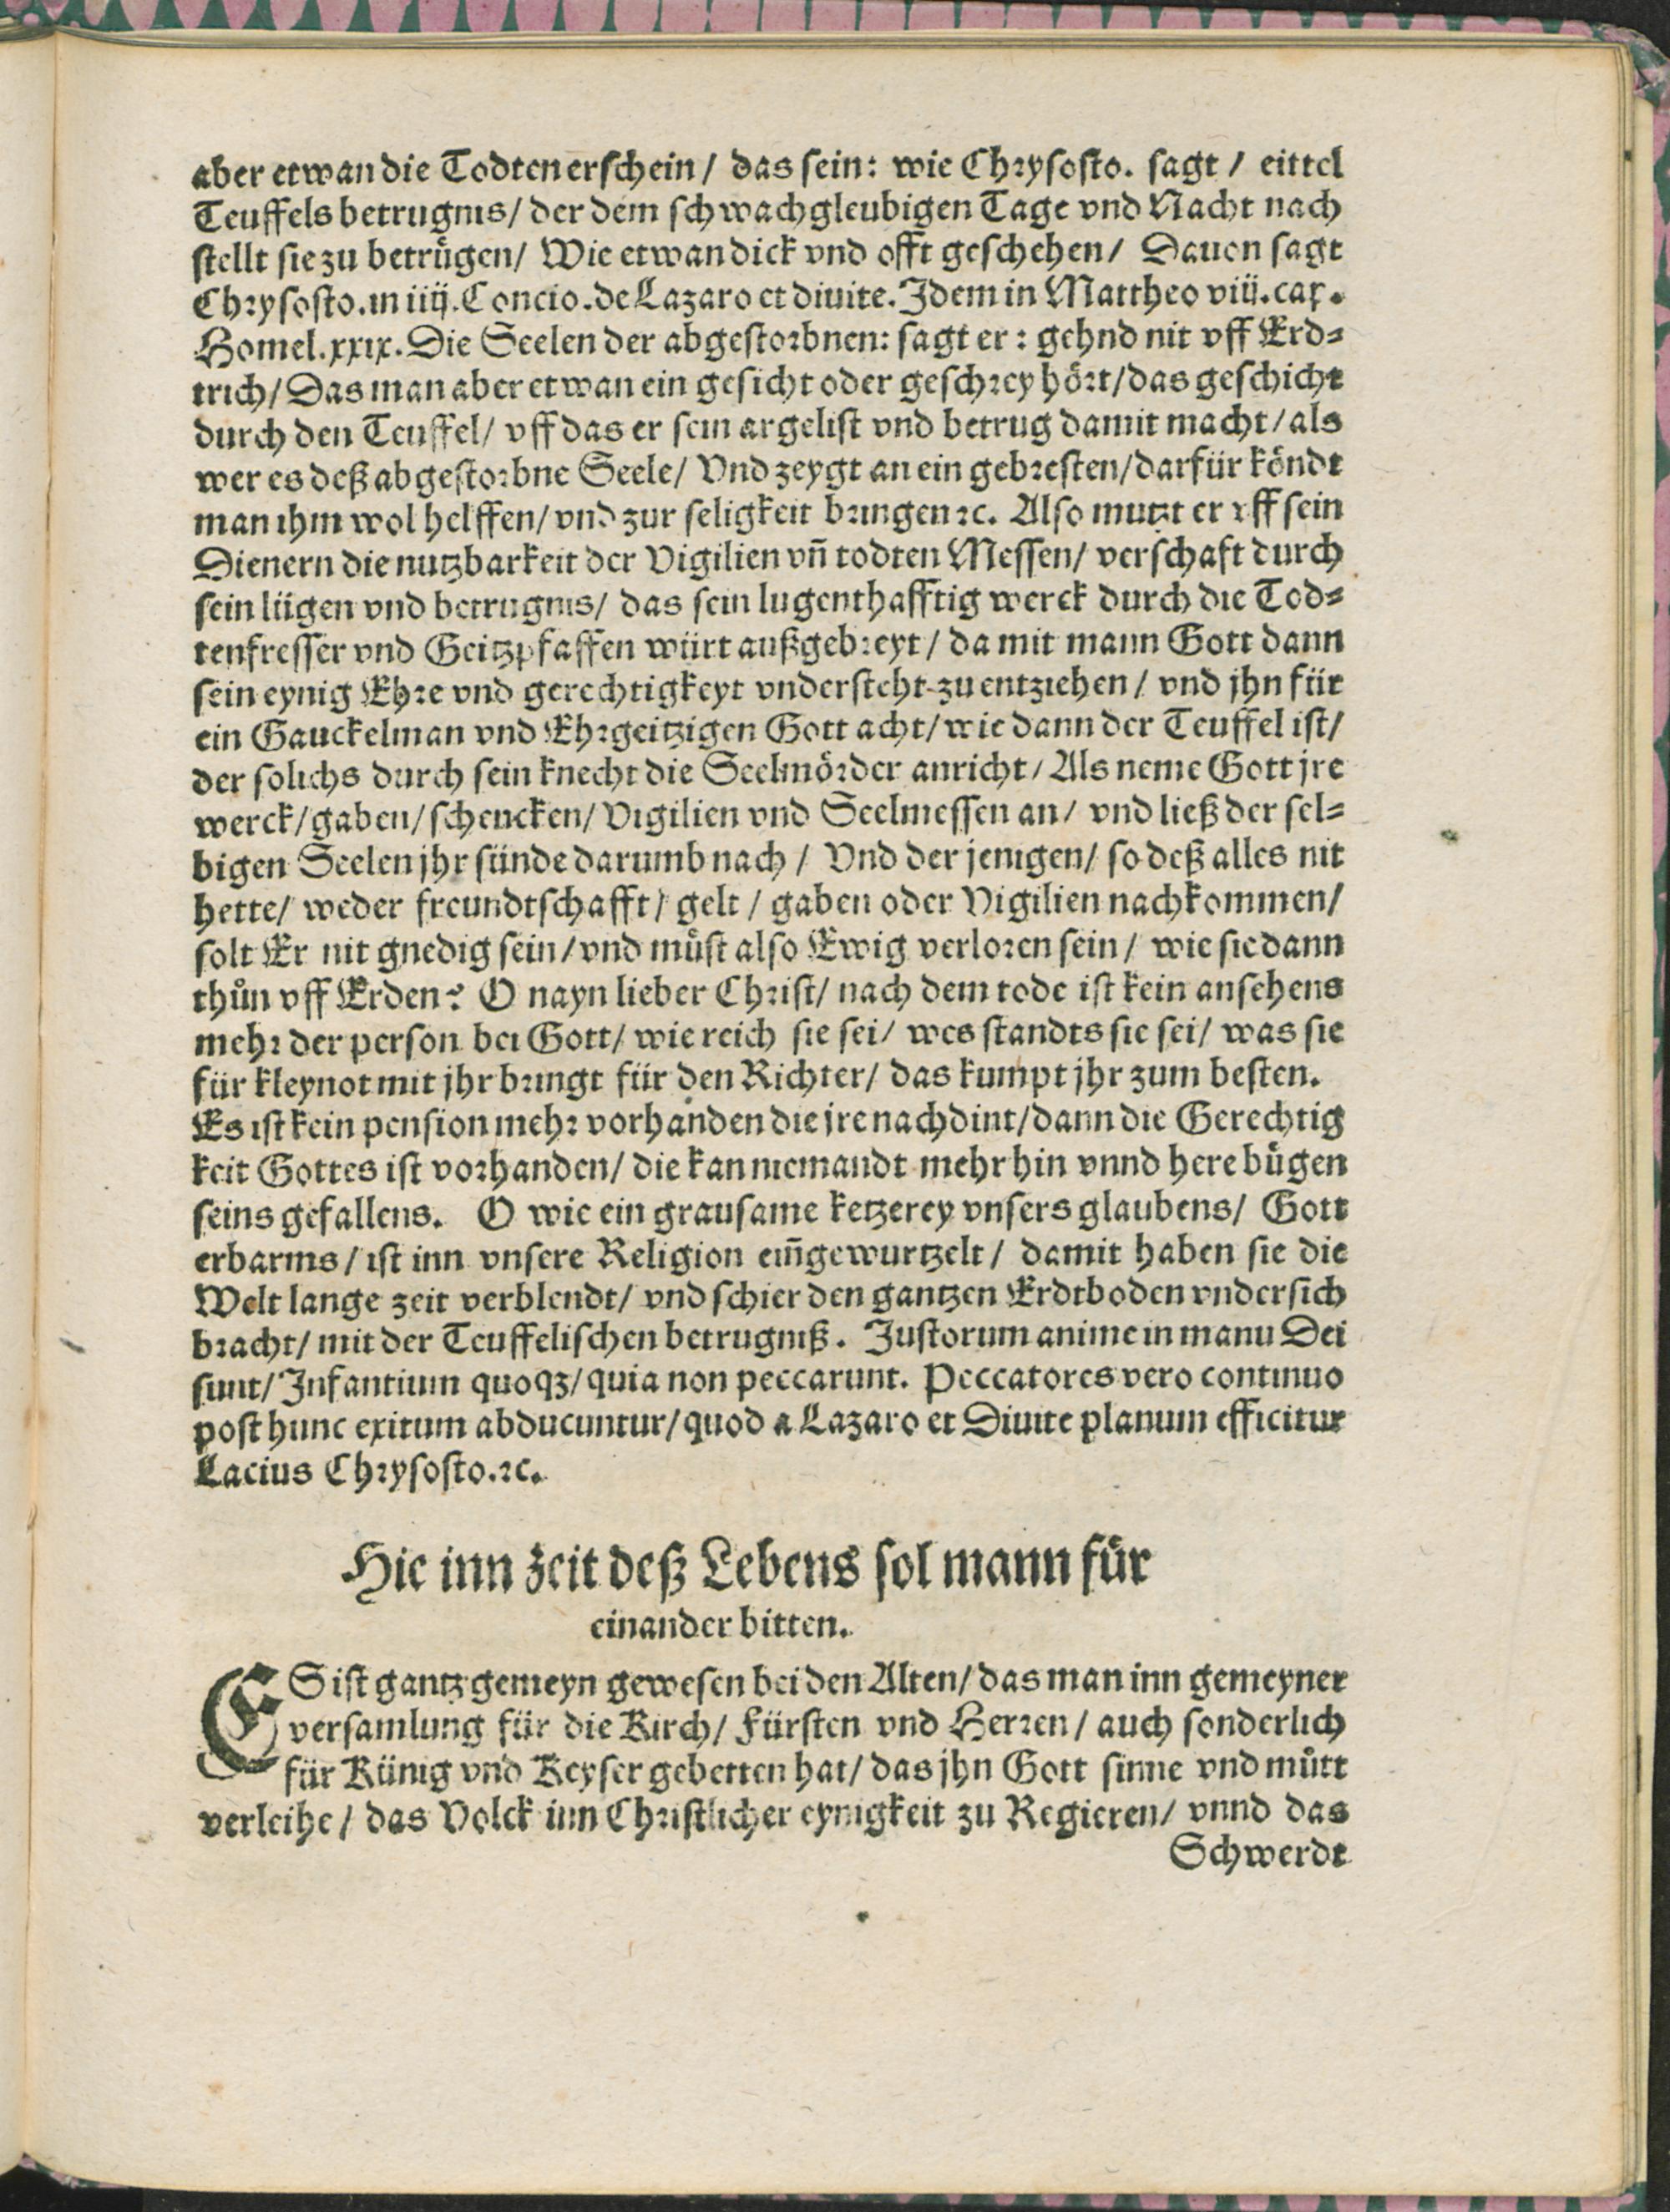 aber etwan die Todten erschein / das sein: wie Chrysosto. sagt / eittel
Teuffels betrugnis / der dem schwachgleubigen Tage vnd Nacht nach
stellt sie zu betrügen / Wie etwan dick vnd offt geschehen / Dauon sagt
Chrysosto. in iiij. Concio. de Lazaro et diuite. Idem in Mattheo viij. cap.
Homel. xxix. Die Seelen der abgestorbnen: sagt er: gehnd nit vff Erd⸗
trich / Das man aber etwan ein gesicht oder geschrey hört / das geschicht
durch den Teuffel / vff das er sein argelist vnd betrug damit macht / als
wer es deß abgestorbne Seele / Vnd zeygt an ein gebresten / darfür köndt
man ihm wol helffen / vnd zur seligkeit bringen ꝛc. Also mutzt er vff sein
Dienern die nutzbarkeit der Vigilien vñ todten Messen / verschaft durch
sein liigen vnd betrugnis / das sein lugenthafftig werck durch die Tod⸗
tenfresser vnd Geitzpfaffen würt außgebreyt / da mit mann Gott dann
sein eynig Ehre vnd gerechtigkeyt vndersteht zu entziehen / vnd jhn für
ein Gauckelman vnd Ehrgeitzigen Gott acht / wie dann der Teuffel ist /
der solichs durch sein knecht die Seelmörder anricht / Als neme Gott jre
werck / gaben / schencken / Vigilien vnd Seelmessen an / vnd ließ der sel⸗
bigen Seelen jhr sünde darumb nach / Vnd der jenigen / so deß alles nit
hette / weder freundtschafft / gelt / gaben oder Vigilien nachkommen /
solt Er nit gnedig sein / vnd müst also Ewig verloren sein / wie sie dann
thůn vff Erden? O nayn lieber Christ / nach dem tode ist kein ansehens
mehr der person bei Gott / wie reich sie sei / wes standts sie sei / was sie
für kleynot mit jhr bringt für den Richter / das kumpt jhr zum besten.
Es ist kein pension mehr vorhanden die jre nachdint / dann die Gerechtig
keit Gottes ist vorhanden / die kan niemandt mehr hin vnnd here bügen
seins gefallens. O wie ein grausame ketzerey vnsers glaubens / Gott
erbarms / ist inn vnsere Religion eiñgewurtzelt / damit haben sie die
Welt lange zeit verblendt / vnd schier den gantzen Erdtboden vndersich
bracht / mit der Teuffelischen betrugniß. Justorum anime in manu Dei
sunt / Infantium quoqꝫ / quia non peccarunt. Peccatores vero continuo
post hunc exitum abducuntur / quod a Lazaro et Diuite planum efficitur
Lacius Chrysosto. ꝛc.
Hie inn zeit deß Lebens sol mann für
einander bitten.
ES ist gantz gemeyn gewesen bei den Alten / das man inn gemeyner
versamlung für die Kirch / Fürsten vnd Herren / auch sonderlich
für Künig vnd Keyser gebetten hat / das jhn Gott sinne vnd můtt
verleihe / das Volck inn Christlicher eynigkeit zu Regieren / vnnd das
Schwerdt